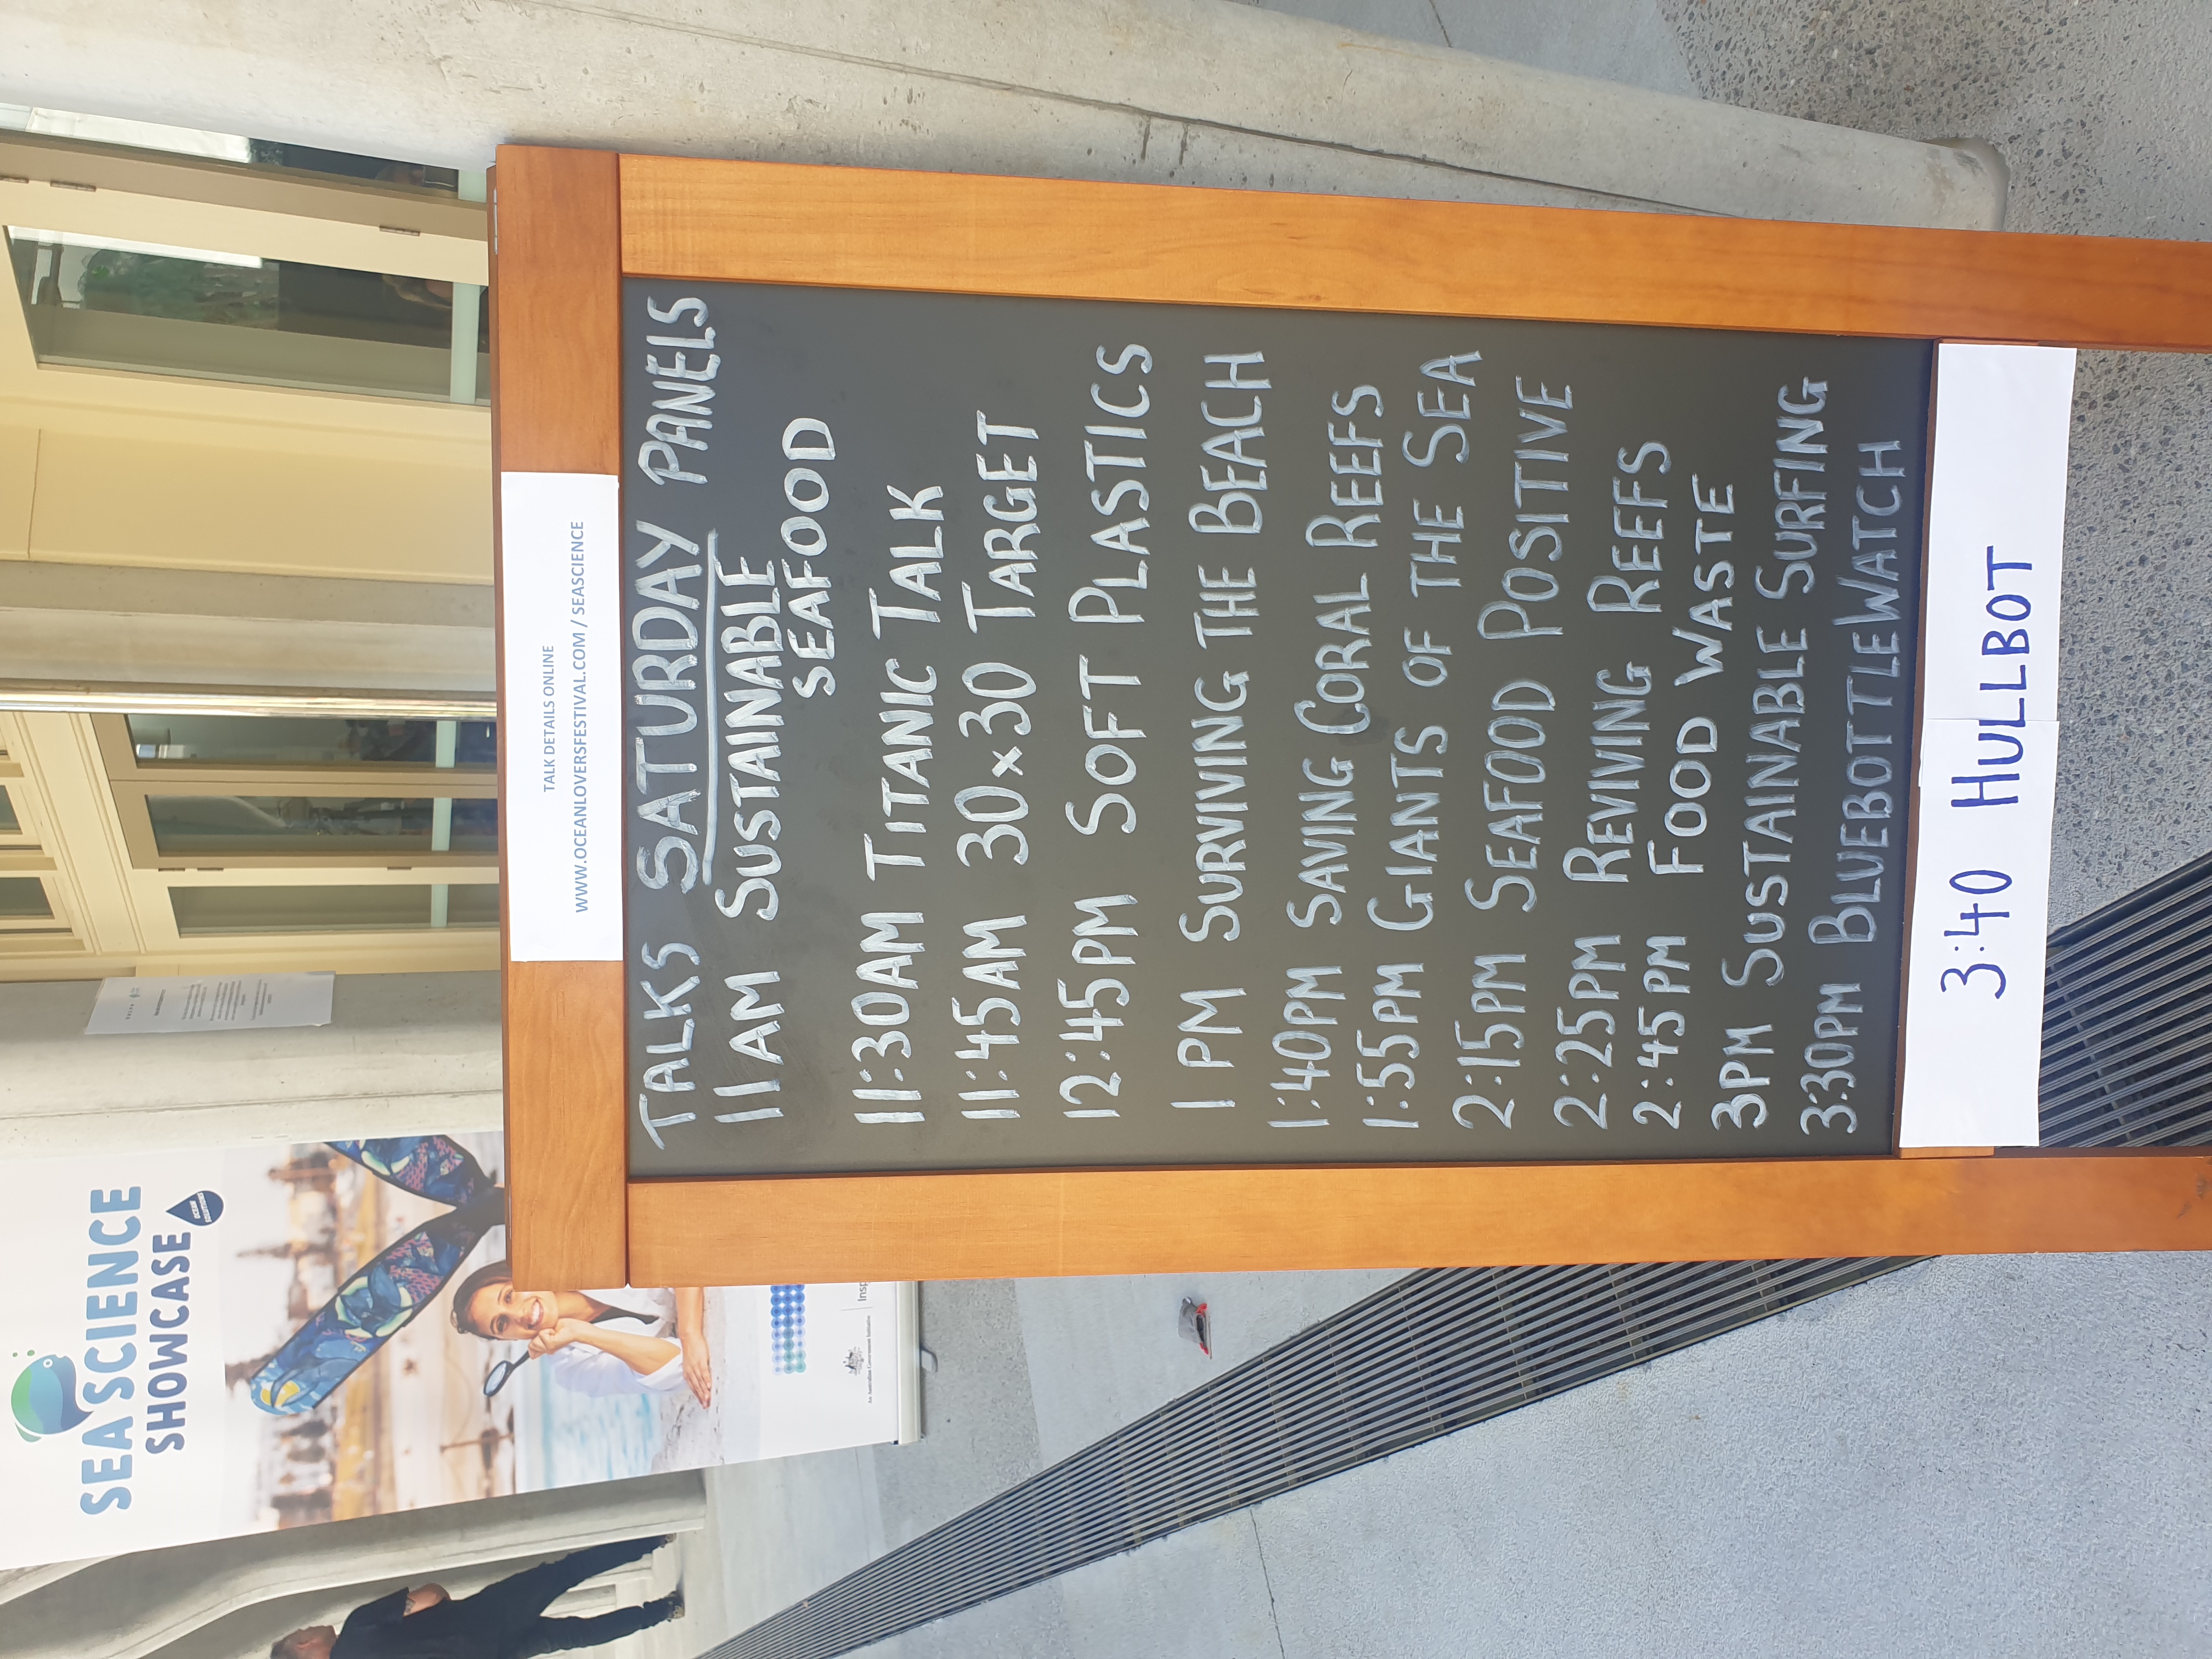 TALK DETAILS ONLINE
WWW.OCEANLOVERSFESTIVAL.COM / SEASCIENCE
TALKS SATURDAY PANELS
11AM SUSTAINABLE
SEAFOOD
11:30AM TITANIC TALK
11:45AM 30x30 TARGET
12:45PM SOFT PLASTICS
1PM SURVIVING THE BEACH
1:40PM SAVING CORAL REEFS
1:55PM GIANTS OF THE SEA
2:15PM SEAFOOD POSITIVE
2:25PM REVIVING REEFS
2:45PM FOOD WASTE
3PM SUSTAINABLE SURFING
3:30PM BLUEBOTTLEWATCH
3:40 HULLBOT
SEASCIENCE
SHOWCASE
An Australian Government Initiative